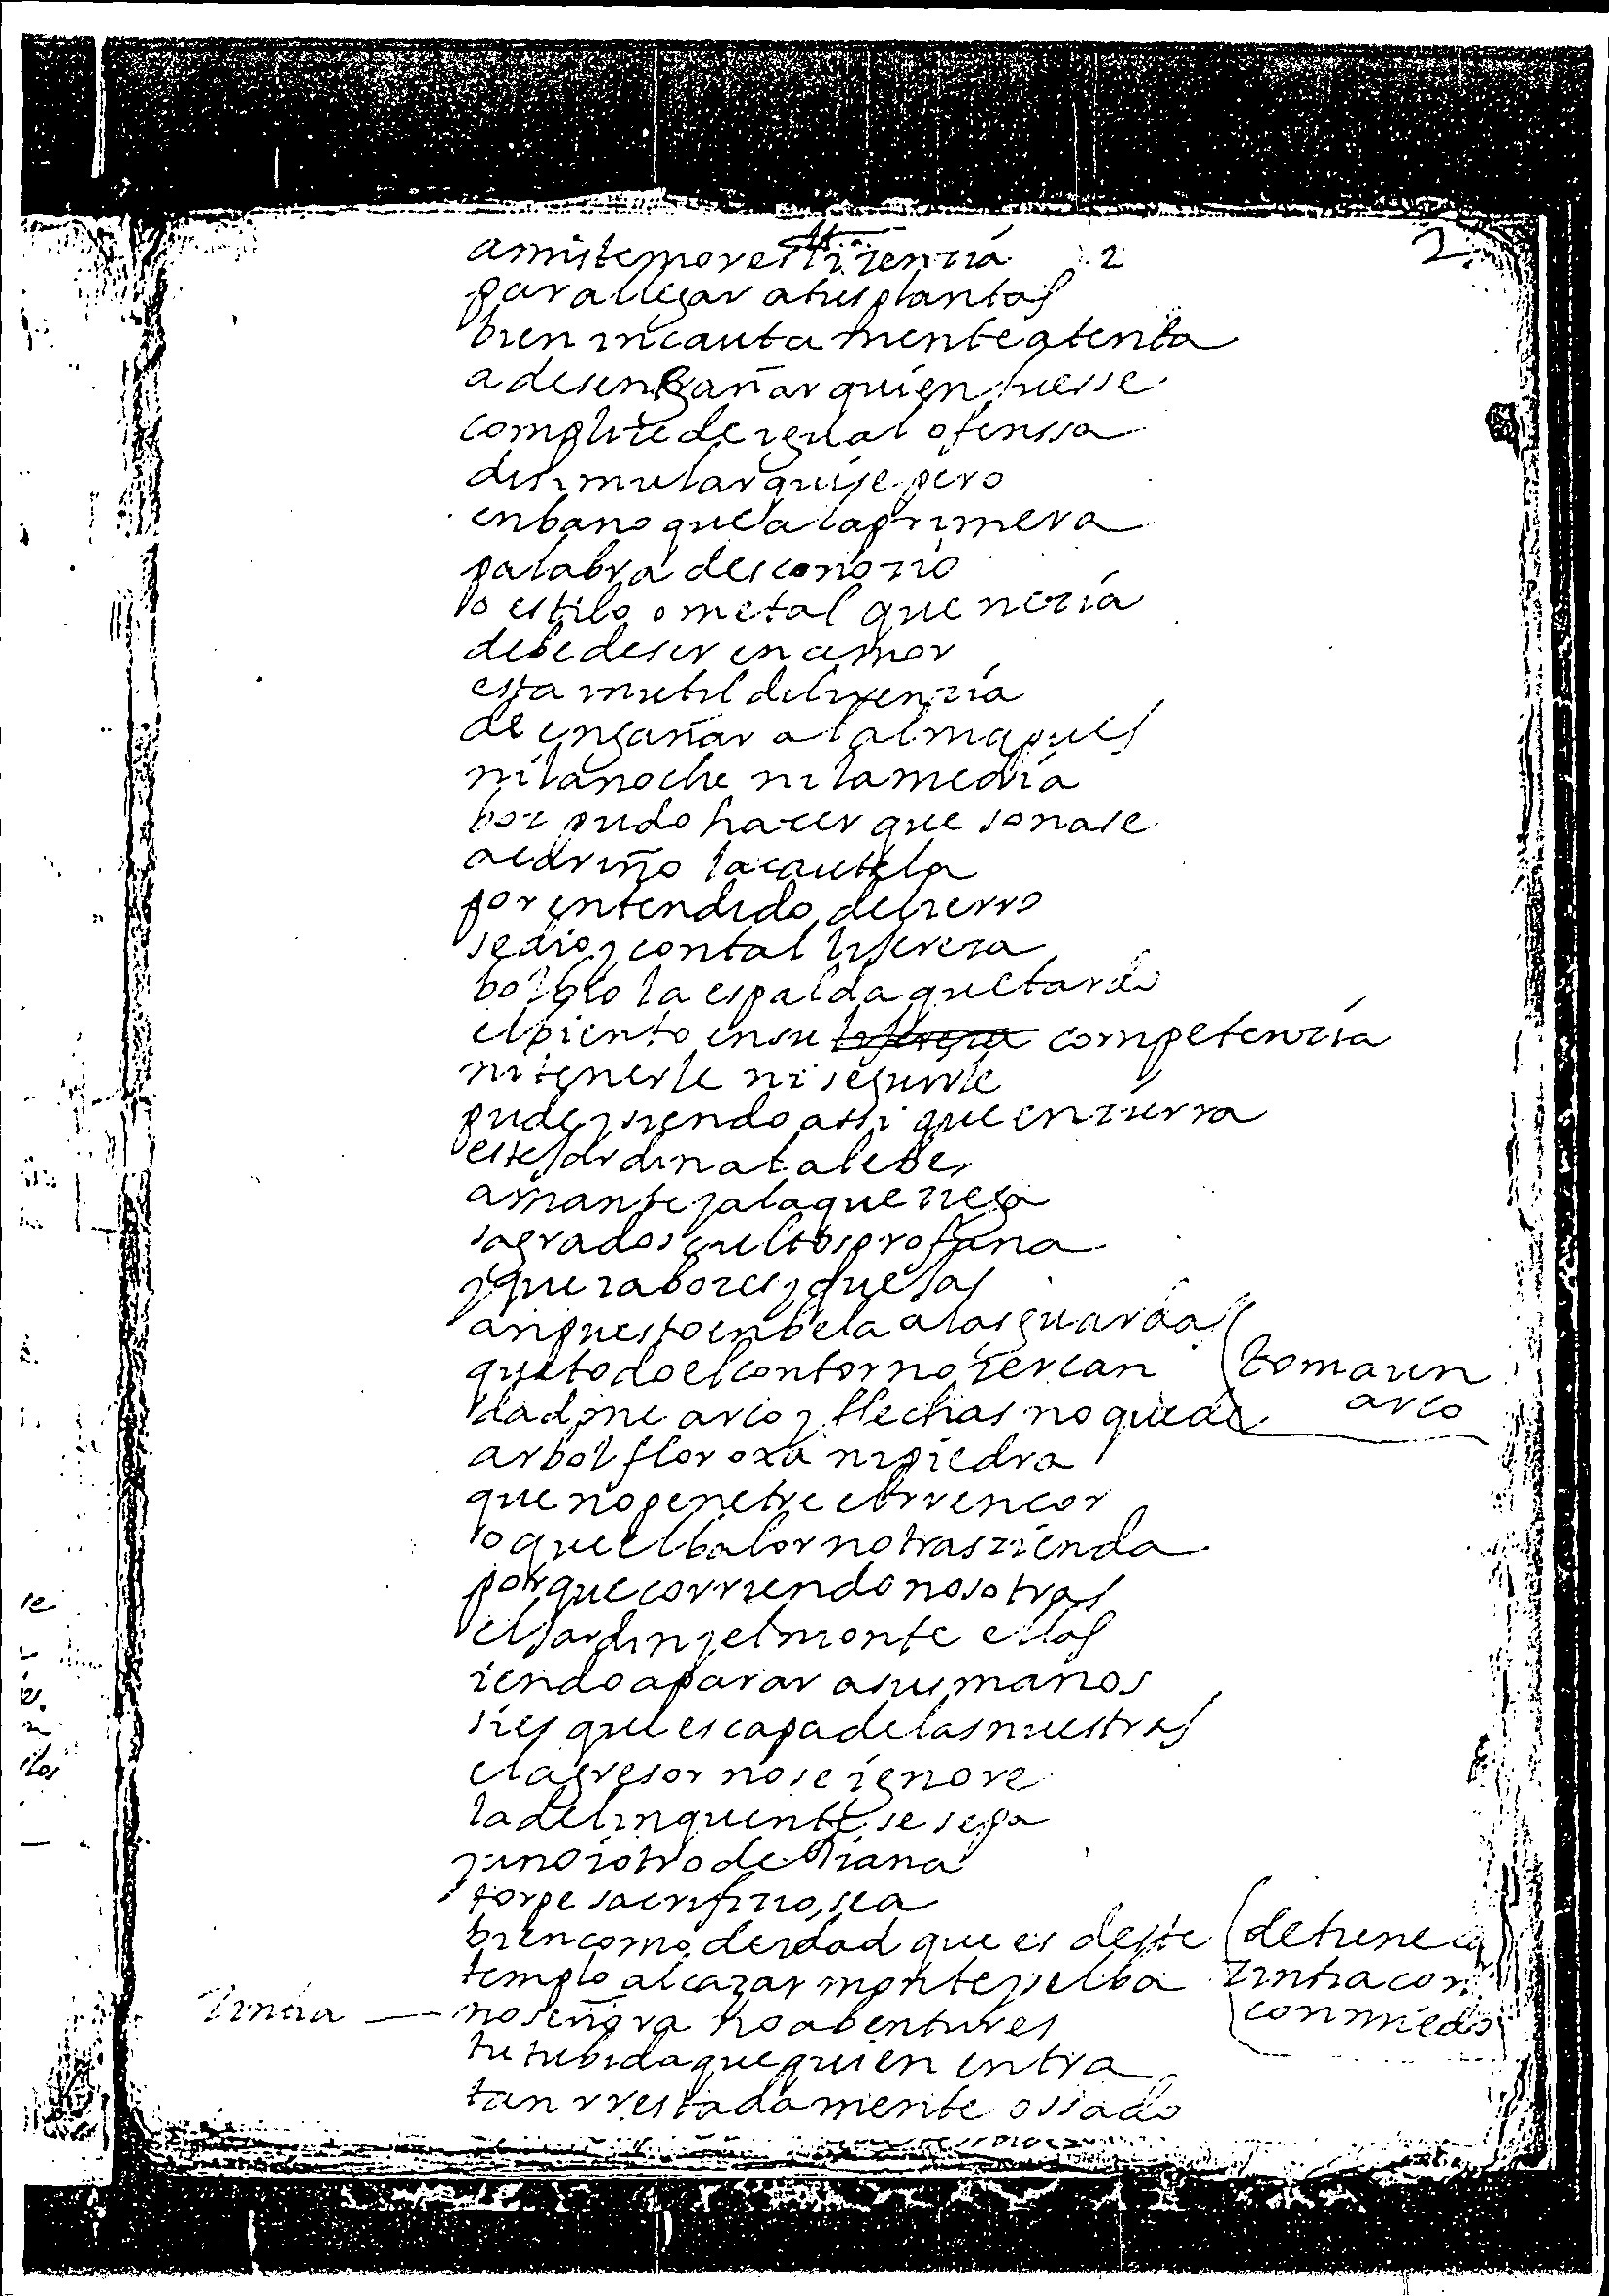 a mis temores lizenzia 2 2
para llegar a tus plantas
bien incautamente atenta
a desengañar quien fuesse
complize de ygual ofenssa
disimular quise pero
en bano que a la primera
palabra desconozio
o estilo o metal que nezia
debe de ser en amor
esta inutil dilixenzia
de engañar al alma pues
ni la noche ni la media
boz pudo hazer que sonase
a cariño la cautela
por entendido del ierro
se dio y con tal lijereza
bolbio la espalda que tardo
el biento en su lijereza competenzia
ni tenerle ni seguirle
pude y siendo assi que enzierra
este jardin al alebe
amante y a la que ziega
sagrados cultos profana
y que zabozes y que las
an puesto en bela a las guardas
que todo el contorno zercan (toma un
arco
dadme arco y flechas no quede
arbol flor oxa ni piedra
que no penetre el rrencor
o que el balor no traszienda
porque corriendo nosotras
el jardin y el monte ellas
iendo a parar a sus manos
si es que escapa de las nuestras
el agresor no se ignore
la delinquente se sepa
y uno i otro de Diana
torpe sacrifizio sea
bien como deidad que es deste (detiene a
templo alcazar monte y selba zintia con
Zintia — no señora no abentures con miedo
tu tu bida que quien entra
tan rrestadamente ossado